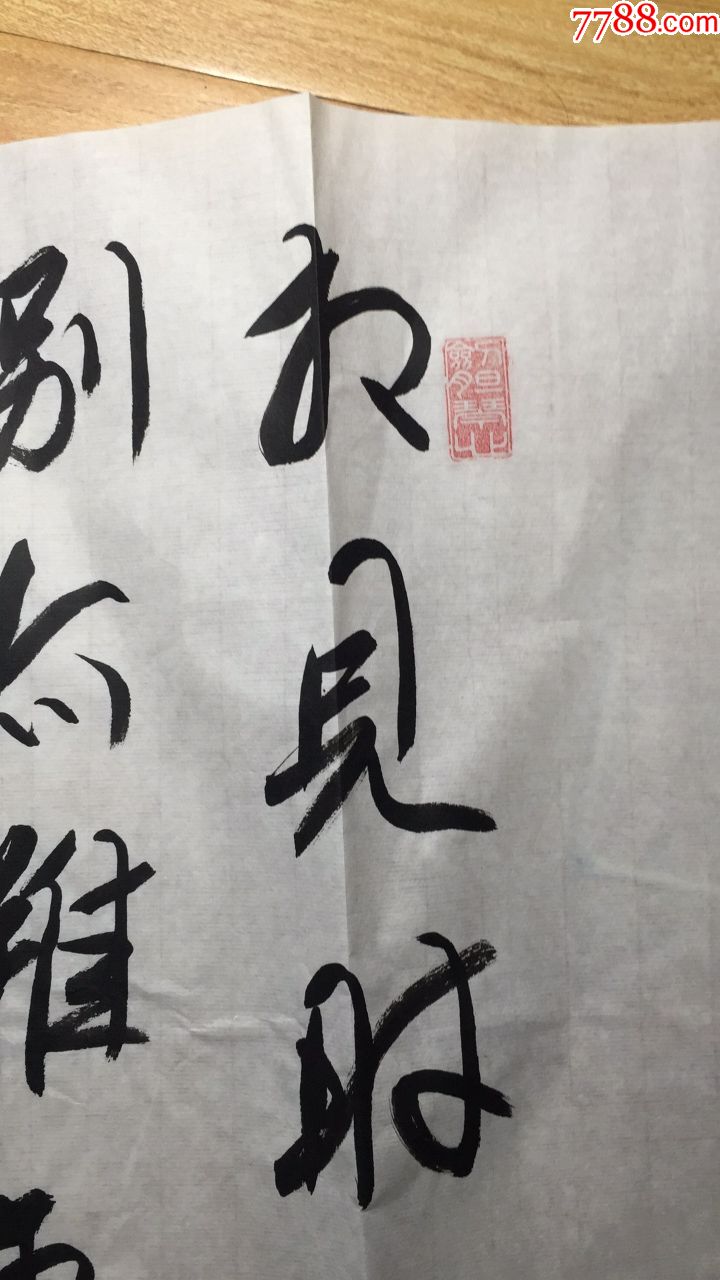 7788.com
相見時
別亦難東